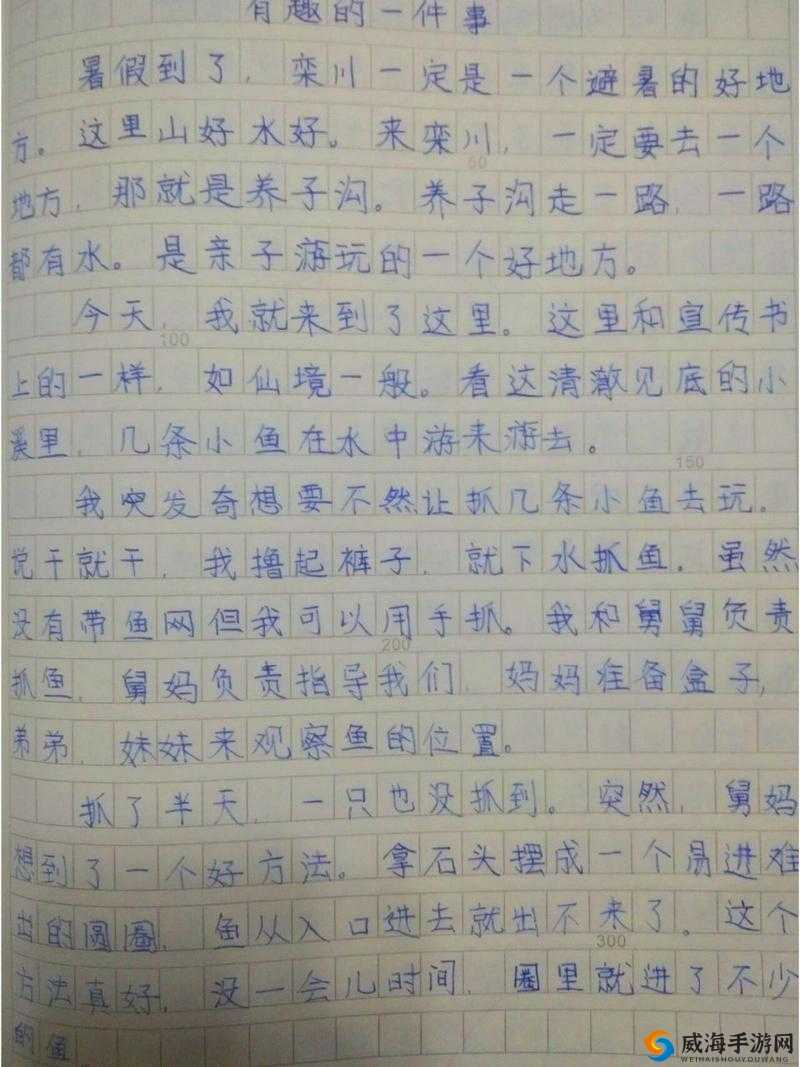 有趣的一件事
暑假到了,栾川一定是一个避暑的好地
方。这里山好水好。来栾川,一定要去一个
地方,那就是养子沟。养子沟走一路,一路
都有水。是亲子游玩的一个好地方。
今天,我就来到了这里。这里和宣传书
上的一样,如仙境一般。看这清澈见底的小
溪里,几条小鱼在水中游来游去。
我突发奇想要不然让抓几条小鱼去玩。
说干就干,我撸起裤子,就下水抓鱼。虽然
没有带鱼网但我可以用手抓。我和舅舅负责
抓鱼,舅妈负责指导我们,妈妈准备盒子,
弟弟,妹妹来观察鱼的位置。
抓了半天,一只也没抓到。突然,舅妈
想到了一个好方法。拿石头摆成一个易进难
出的圆圈,鱼从入口进去就出不来了。这个
方法真好,没一会儿时间,圈里就进了不少
的鱼
50
100
150
200
300
威海手游网
WEIHAISHOUYOUWANG